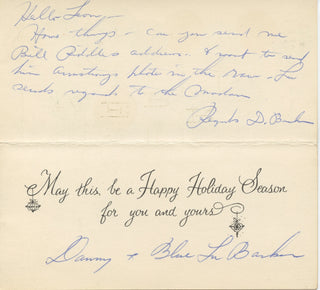 Hello Leony
Hows things - Can you send me
Bill address. I want to send
him Armstrongs photo in the . Lu
sends regards to the
Regards D. Barker
May this be a Happy Holiday Season
for you and yours
Danny & Blue Lu Barker